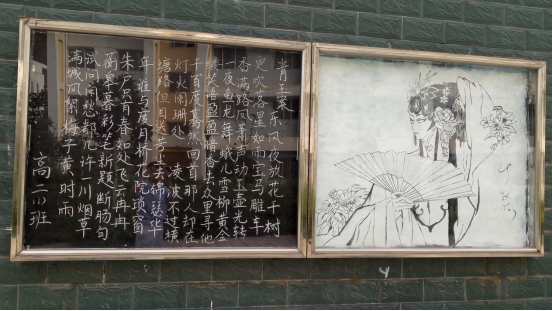 青玉案 东风夜放花千树
更吹落星如雨宝马雕车
香满路凤箫声动玉壶光转
一夜鱼龙舞蛾儿雪柳黄金
缕笑语盈盈暗香去众里寻他
千百度蓦然回首那人却在
灯火阑珊处 凌波不过横
塘路但目送芳尘去锦瑟华
年谁与度月桥花院琐窗
朱户只有春知处飞云冉冉
蘅皋暮彩笔新题断肠句
试问闲愁都几许一川烟草
满城风絮梅子黄时雨
高二班